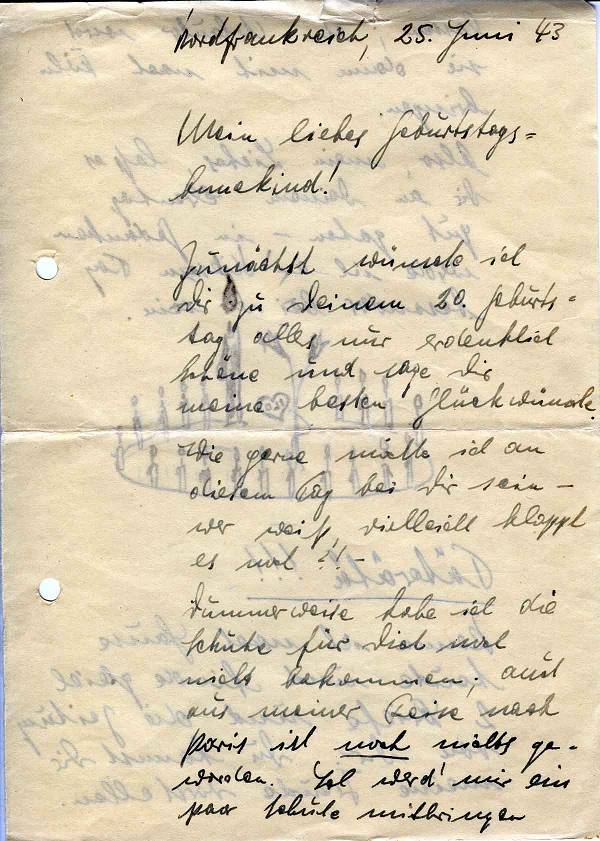 Nordfrankreich, 25. Juni 43
Mein liebes Geburtstags=
kind!
Zunächst wünsche ich
Dir zu Deinem 20. Geburts=
tag alles nur erdenklich
schöne und sage Dir
meine besten Glückwünsche.
Wie gerne möchte ich an
diesem Tag bei Dir sein –
wer weiß, vielleicht klappt
es noch !! –
Dummerweise habe ich die
Schuhe für Dich noch
nicht bekommen; auch
aus meiner Reise nach
Paris ist noch nichts ge-
worden. Ich werd' mir ein
paar Schuhe mitbringen